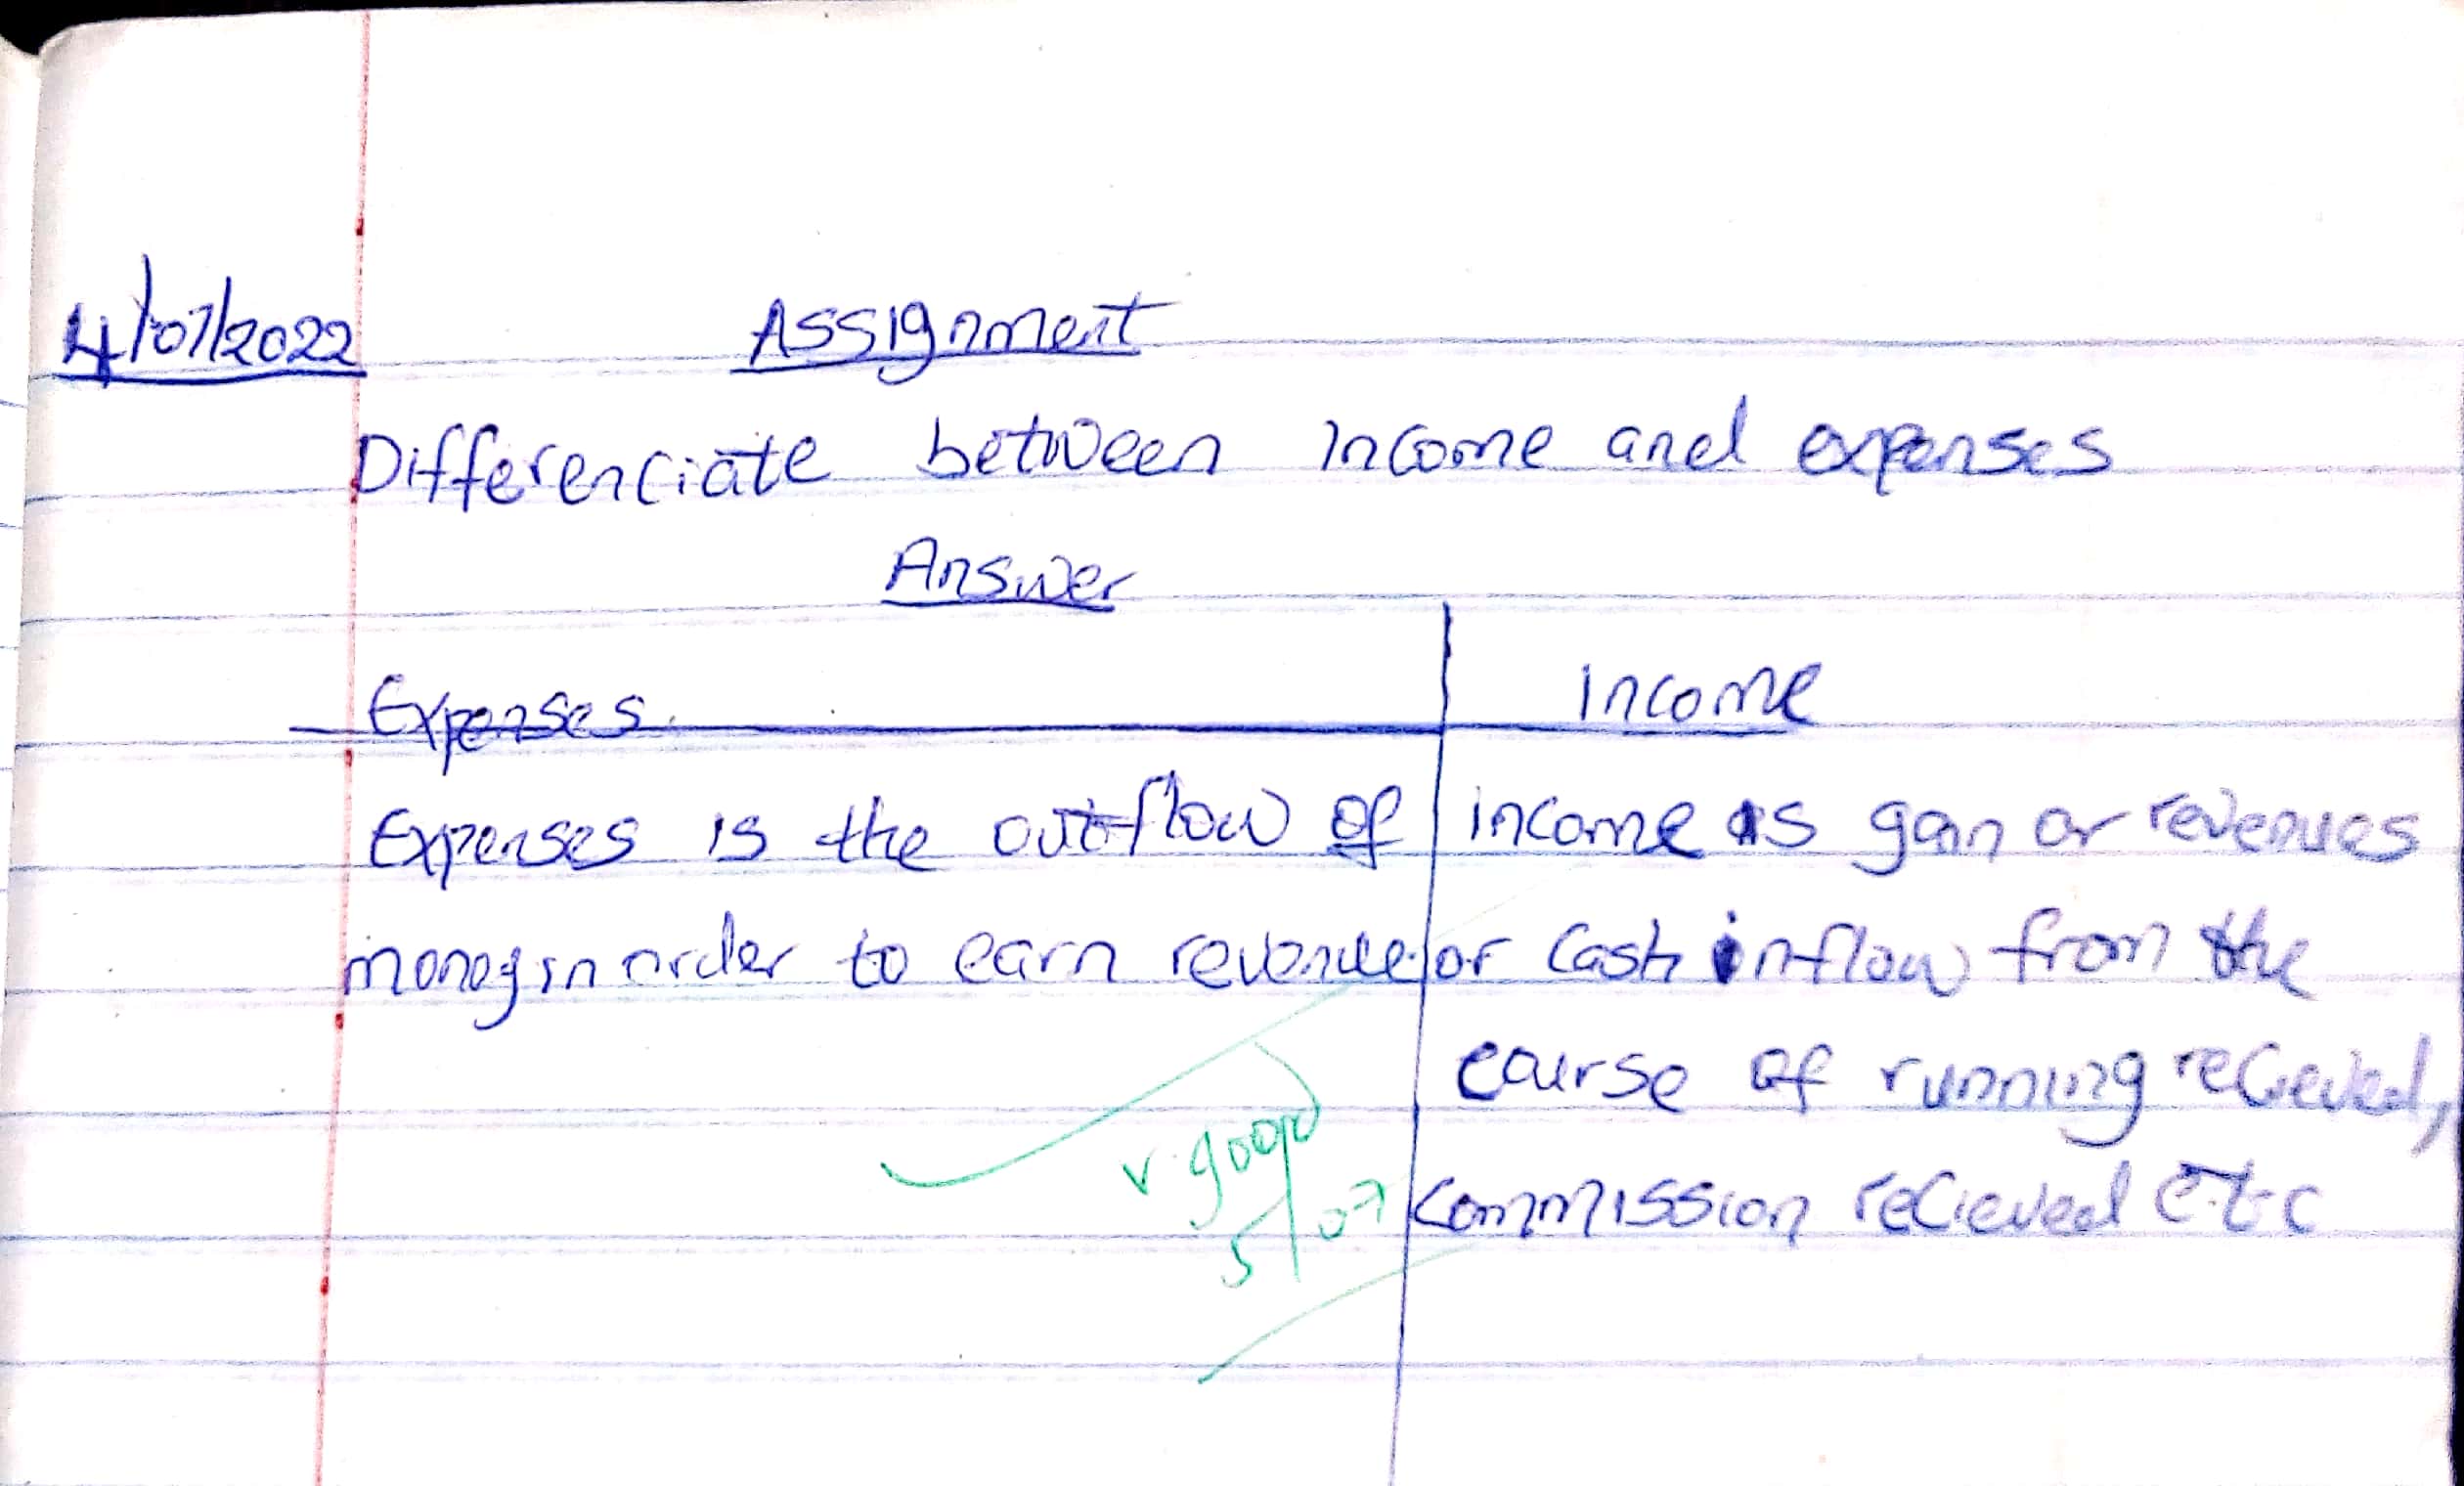 4/07/2022 Assignment
Differenciate between income and expenses
Answer
Expenses
Expenses is the outflow of
money in order to earn revenue.
income
income is gain or revenues
or cash inflow from the
course of running recieved,
commission recieved etc
v. good
5/07